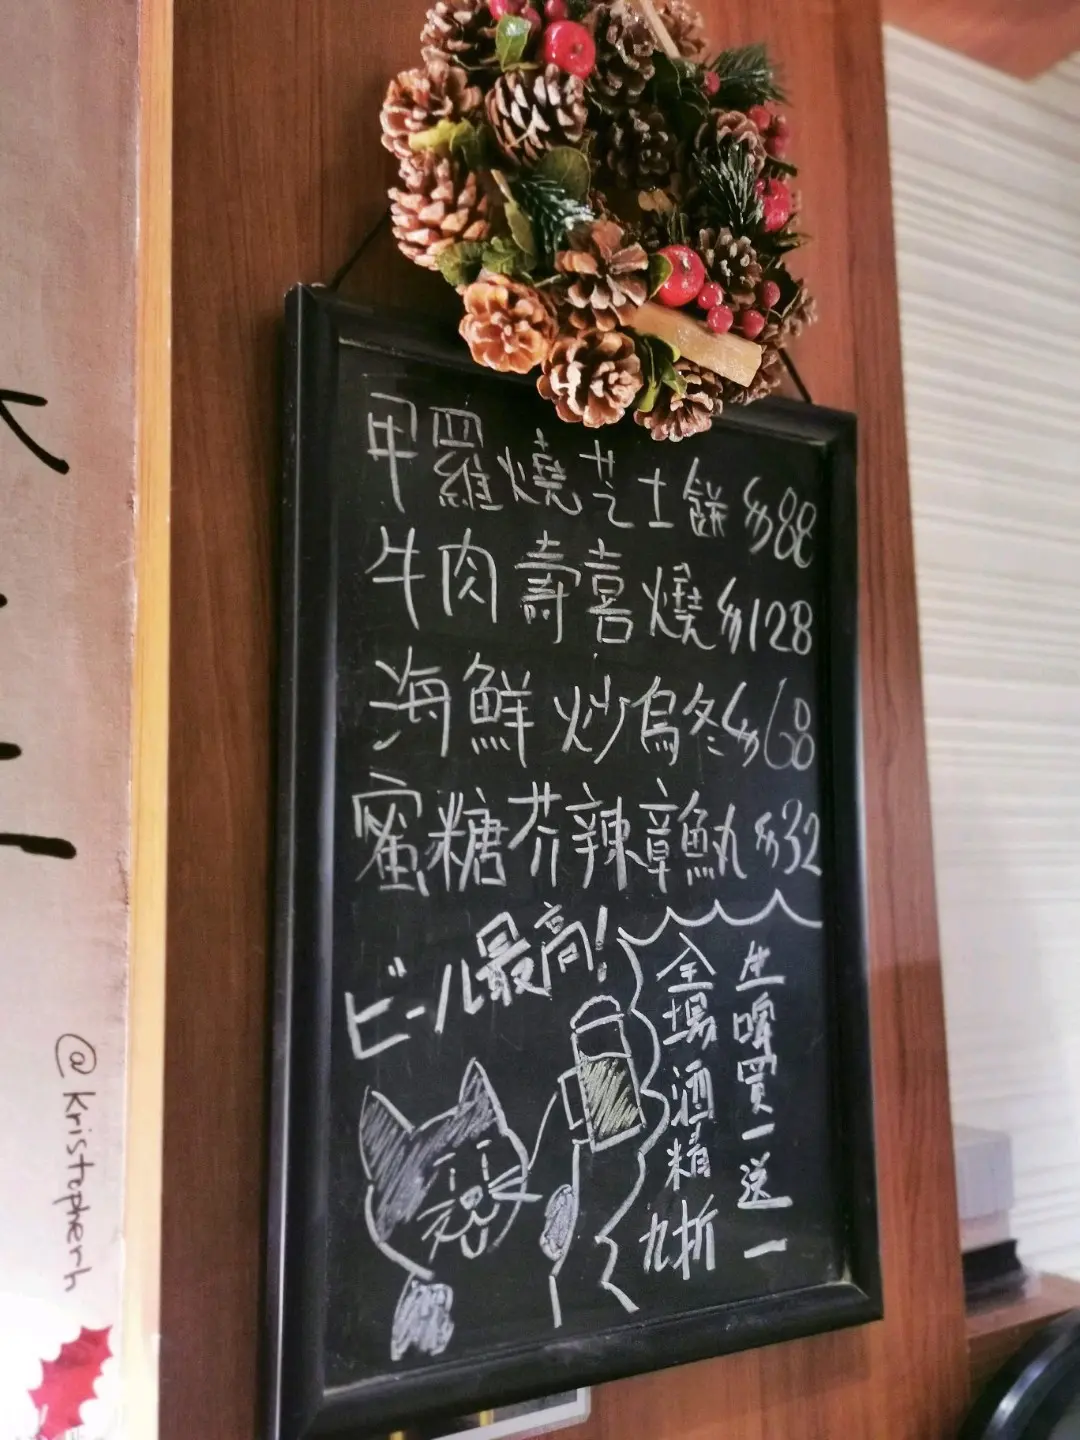 甲羅燒芝士餅 $88
牛肉壽喜燒 $128
海鮮炒烏冬 $68
蜜糖芥辣章魚丸 $32
ビール最高!
生啤買一送一
全場酒精九折
@kristopherh